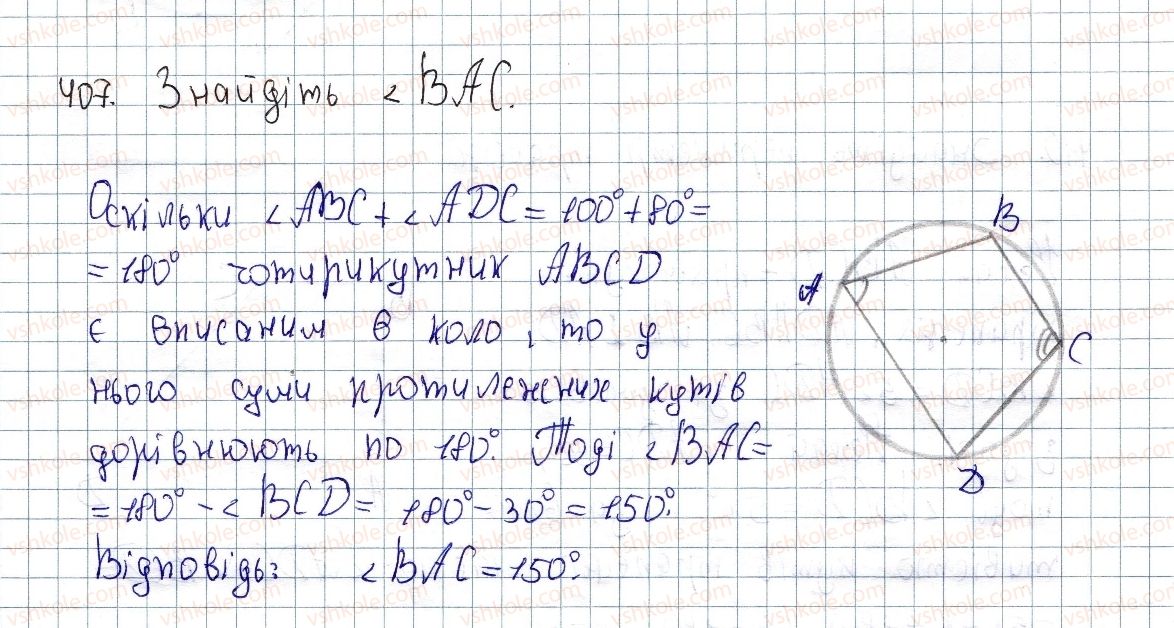 407. Знайдіть ∠BAC.
Оскільки ∠ABC + ∠ADC = 100° + 80° =
= 180° чотирикутник ABCD
є вписаним в коло, то у
нього суми протилежних кутів
дорівнюють по 180°. Тоді ∠BAC =
= 180° - ∠BCD = 180° - 30° = 150°.
Відповідь: ∠BAC = 150°.
B
A
C
D
vshkole.com